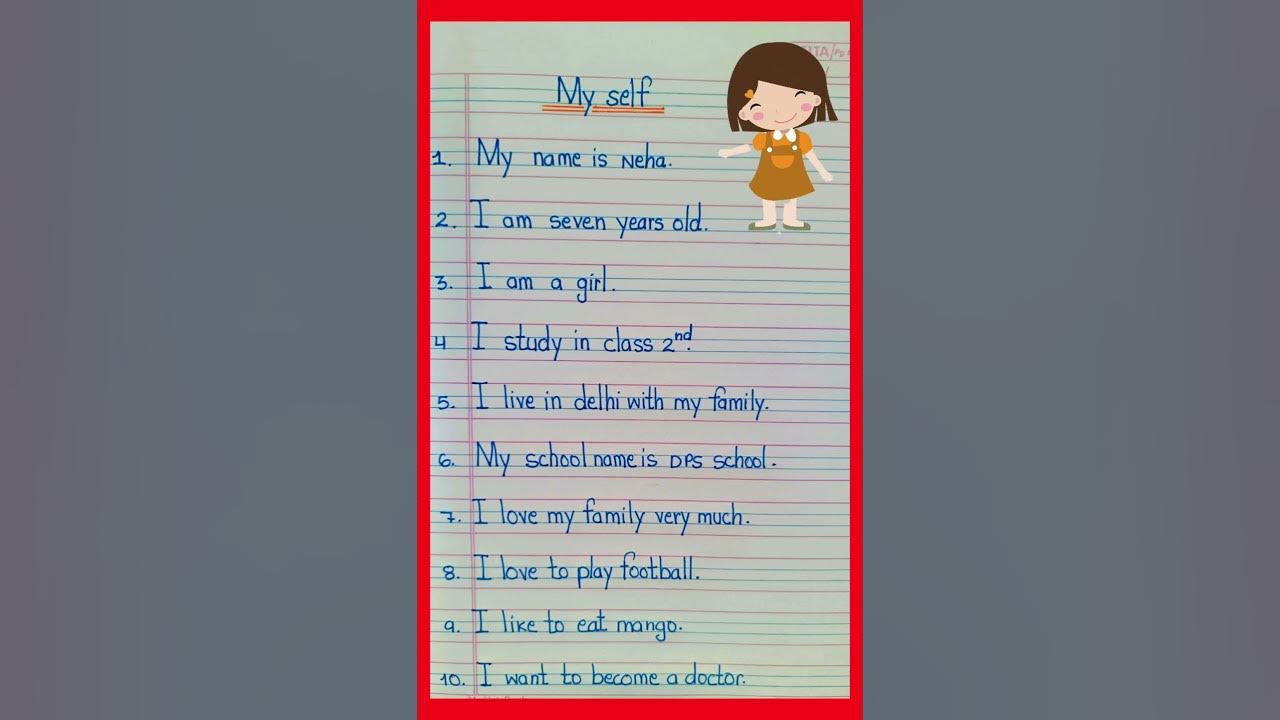 My self
1. My name is Neha.
2. I am seven years old.
3. I am a girl.
4 I study in class 2nd.
5. I live in delhi with my family.
6. My school name is DPS school.
7. I love my family very much.
8. I love to play football.
9. I like to eat mango.
10. I want to become a doctor.